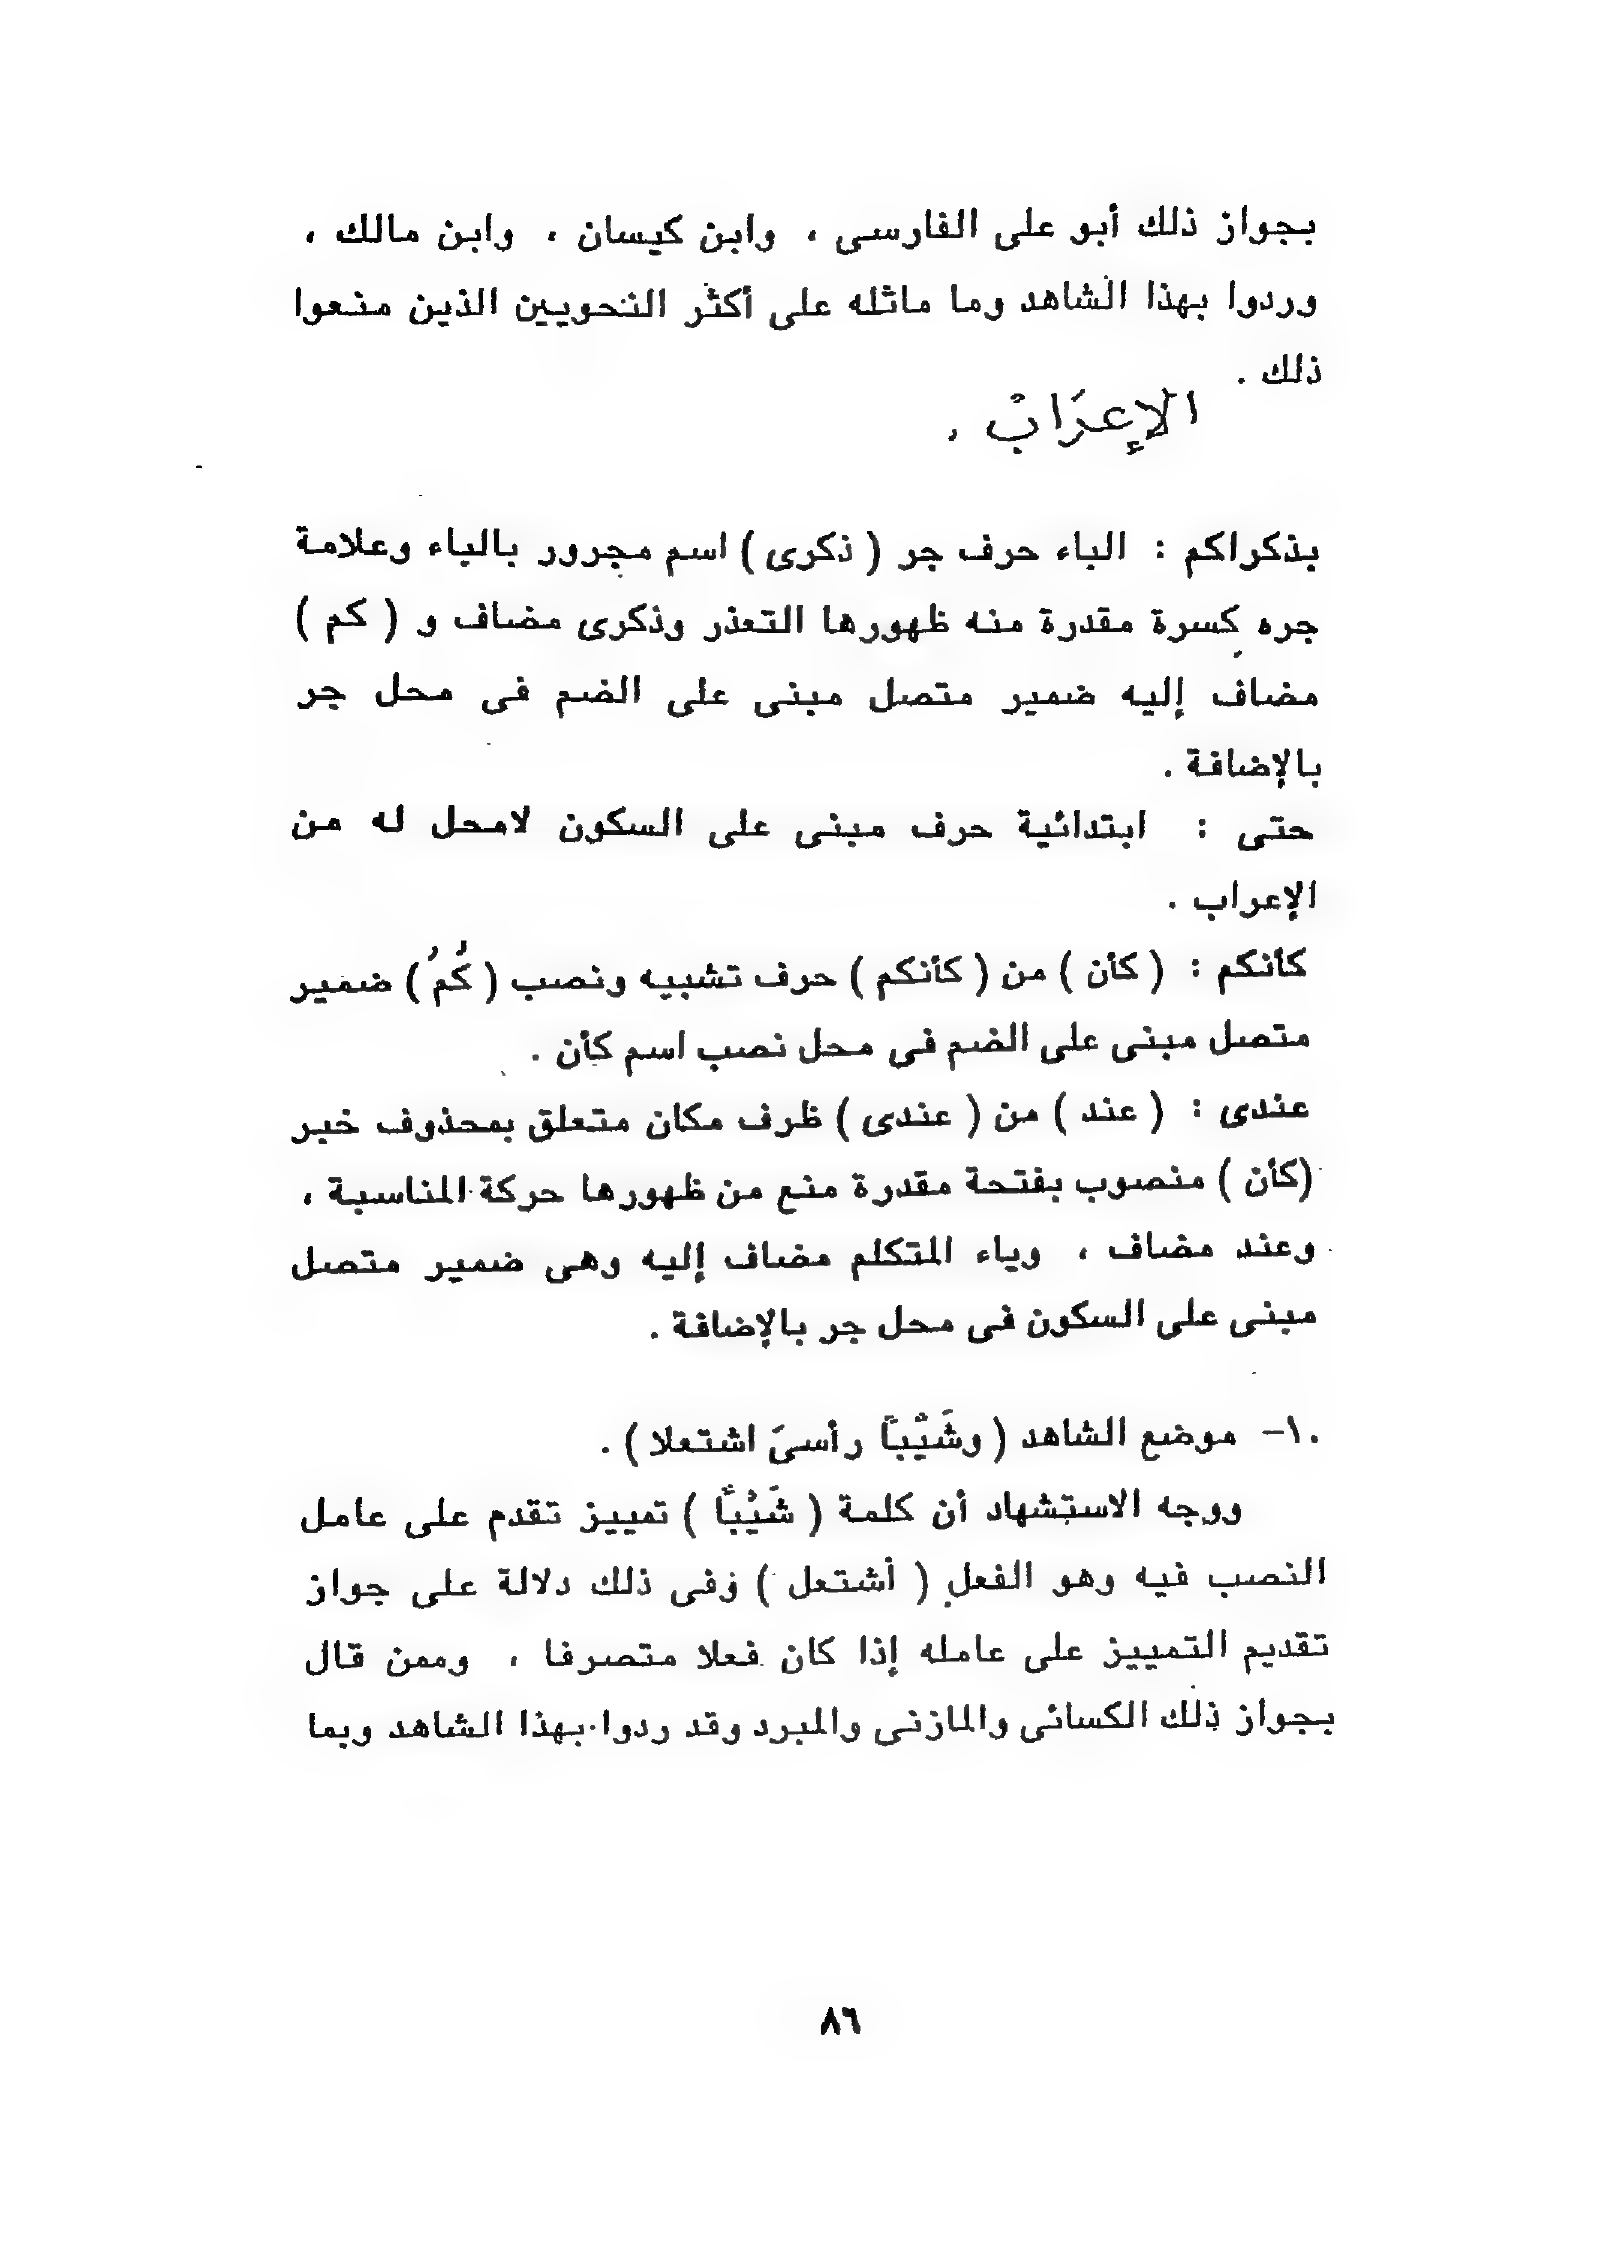 بجواز ذلك أبو على الفارسى ، وابن كيسان ، وابن مالك ،
وردوا بهذا الشاهد وما ماثله على أكثر النحويين الذين منعوا
ذلك .
الإعرَابْ .
بذكراكم : الباء حرف جر ( ذكرى ) اسم مجرور بالباء وعلامة
جره كسرة مقدرة منه ظهورها التعذر وذكرى مضاف و ( كم )
مضاف إليه ضمير متصل مبنى على الضم فى محل جر
بالإضافة .
حتى : ابتدائية حرف مبنى على السكون لامحل له من
الإعراب .
كأنكم : ( كأن ) من ( كأنكم ) حرف تشبيه ونصب ( كُمُ ) ضمير
متصل مبنى على الضم فى محل نصب اسم كأن .
عندى : ( عند ) من ( عندى ) ظرف مكان متعلق بمحذوف خبر
(كأن ) منصوب بفتحة مقدرة منع من ظهورها حركة المناسبة ،
وعند مضاف ، وياء المتكلم مضاف إليه وهى ضمير متصل
مبنى على السكون فى محل جر بالإضافة .
١٠- موضع الشاهد ( وشَيْباً رأسىَ اشتعلا ) .
ووجه الاستشهاد أن كلمة ( شَيْباً ) تمييز تقدم على عامل
النصب فيه وهو الفعل ( أشتعل ) وفى ذلك دلالة على جواز
تقديم التمييز على عامله إذا كان فعلا متصرفا ، وممن قال
بجواز ذلك الكسائى والمازنى والمبرد وقد ردوا بهذا الشاهد وبما
٨٦